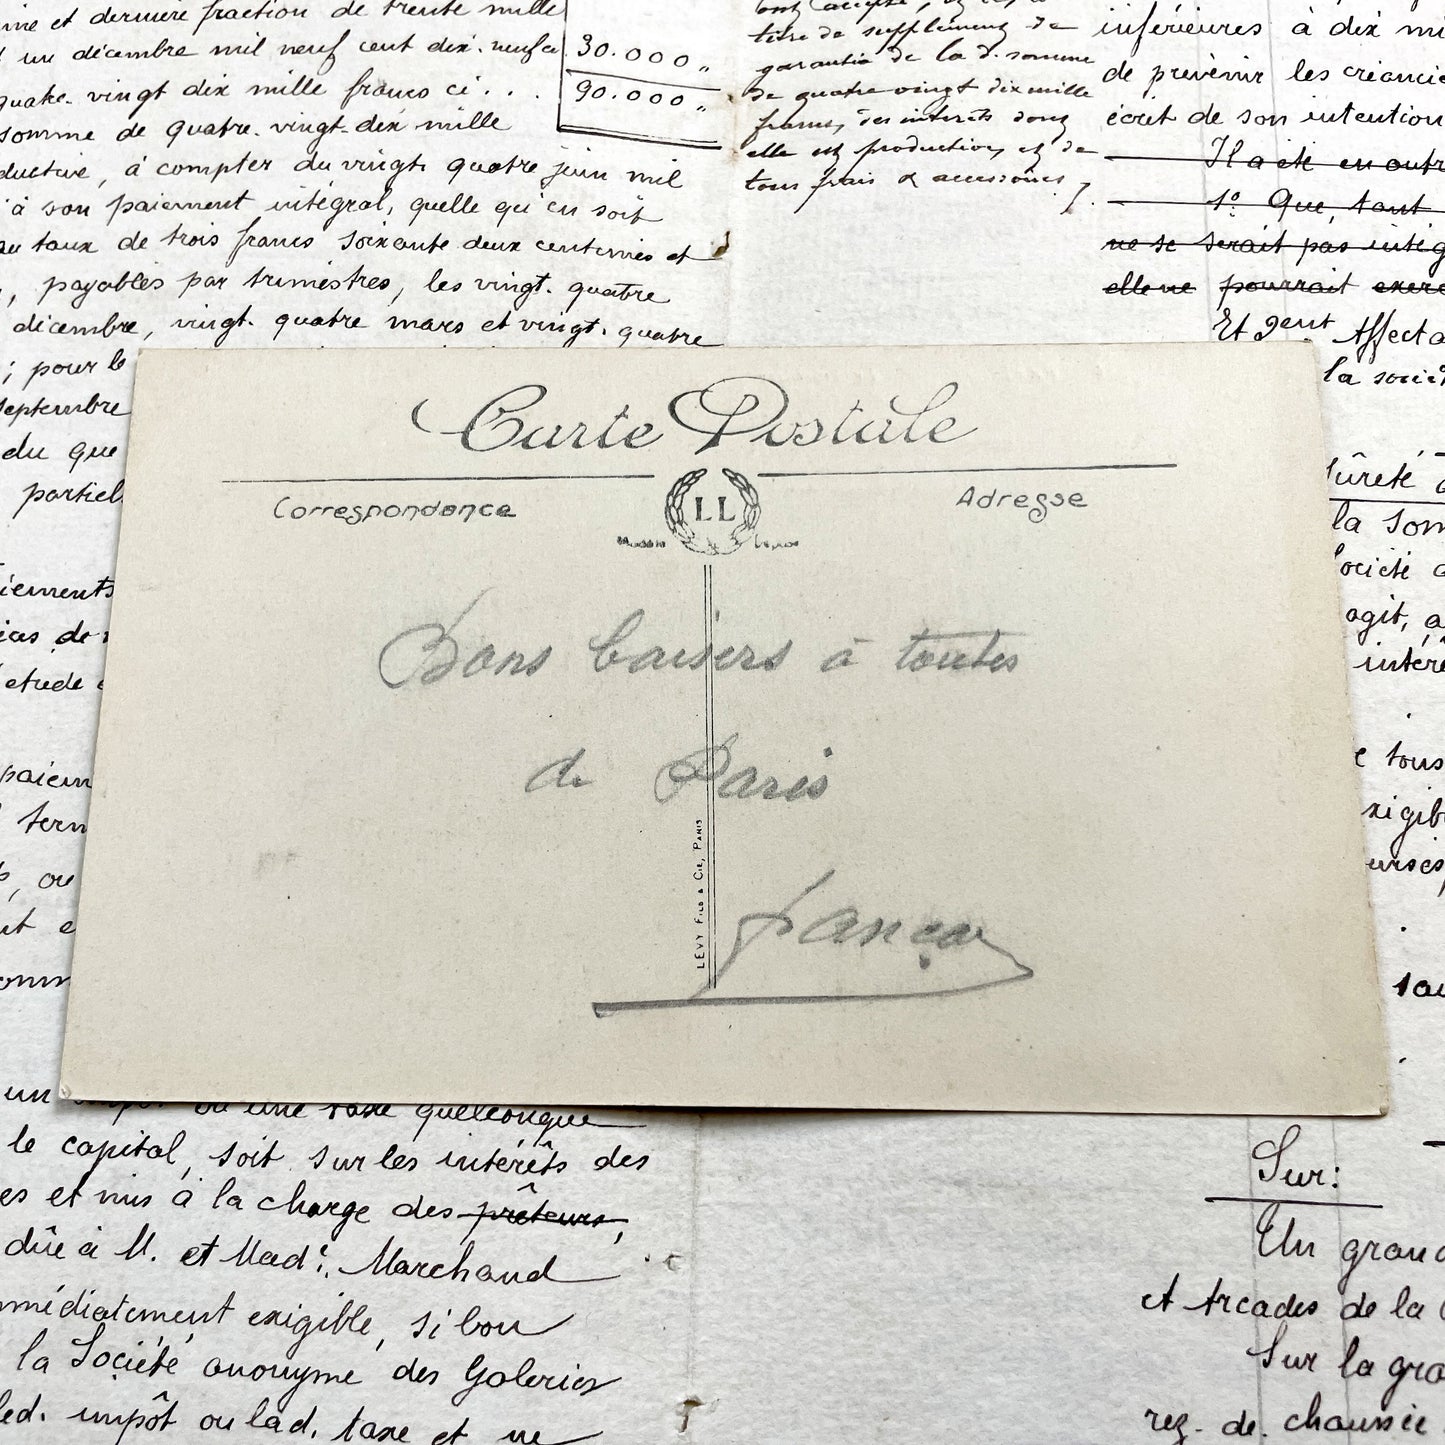 ine et dernière fraction de trente mille
un décembre mil neuf cent dix-neuf ci
30.000 "
quatre-vingt dix mille francs ci . . .
90.000 "
somme de quatre-vingt-dix mille
ductive, à compter du vingt quatre juin mil
à son paiement intégral, quelle qu'en soit
au taux de trois francs soixante deux centimes et
, payables par trimestres, les vingt-quatre
décembre, vingt-quatre mars et vingt-quatre
; pour le
septembre
du que
partiel
titre de supplément de
garantie de la d. somme
de quatre vingt dix mille
francs, des intérêts dont
elle est productive, et de
tous frais & accessoires
inférieures à dix mi
de prévenir les créancie
écrit de son intention
Il a été en outr
1º Que, tant
ne se serait pas intég
elle ne pourrait exerc
Et Affecta
la socié
Sûreté
la som
Société
agit, a
intérê
Carte Postale
Correspondance
LL
Adresse
Bons baisers à toutes
de Paris
LÉVY FILS & CIE, PARIS
iements
etude
paiem
term
, ou
tous
xigib
ou une taxe quelconque
le capital, soit sur les intérêts des
es et mis à la charge des prêteurs,
dûe à M. et Mad. Marchand
mmédiatement exigible, si bon
la Société anonyme des Galeries
led. impôt ou lad. taxe et ne
Sur:
Un grand
et Arcades de la
Sur la gra
rez-de-chaussée